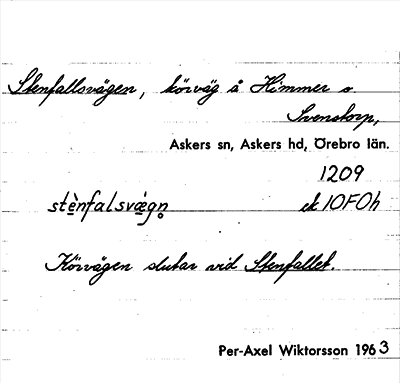 Stenfallsvägen, körväg å Himmer o.
Svenstorp,
Askers sn, Askers hd, Örebro län.
1209
stènfalsvǽgn̥ ek 10F0h
Körvägen slutar vid Stenfallet.
Per-Axel Wiktorsson 1963